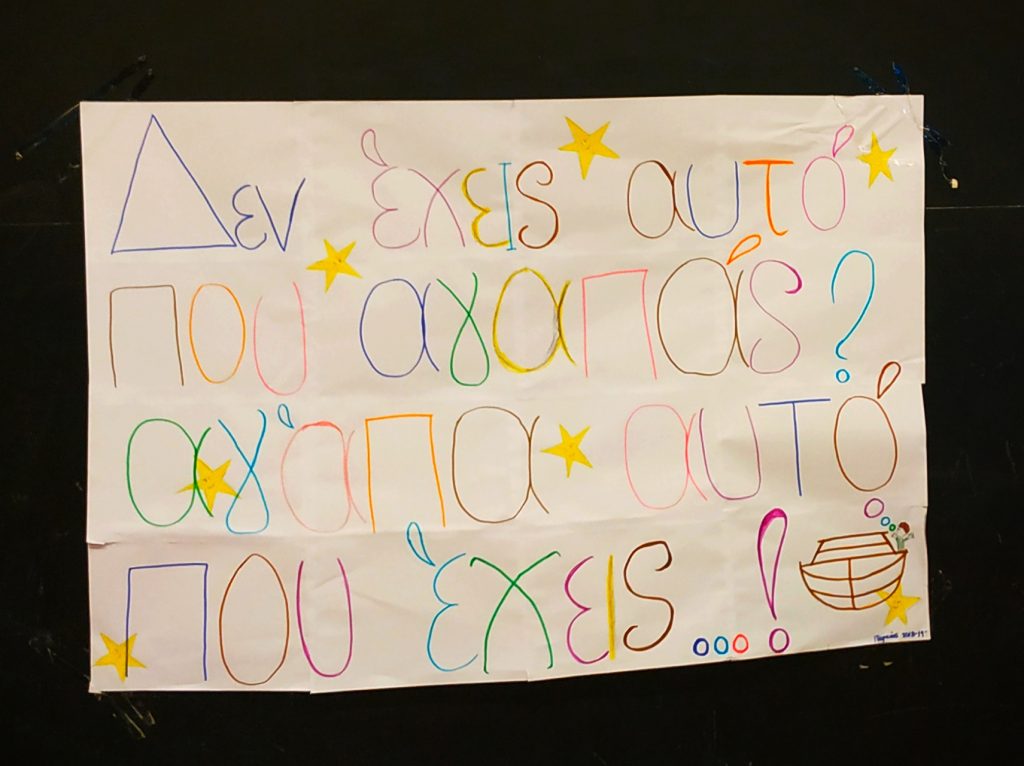 Δεν έχεις αυτό
που αγαπάς?
αγάπα αυτό
που έχεις ...!